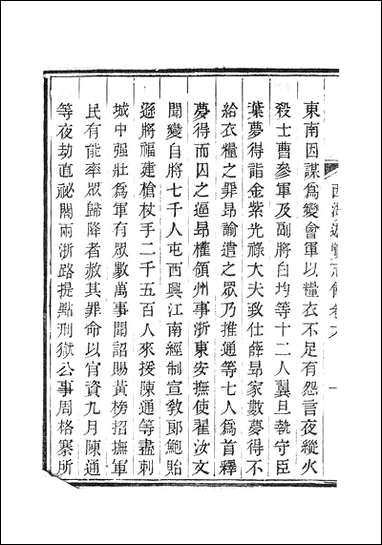 東南因謀爲變會軍以糧衣不足有怨言夜縱火
殺士曹參軍及副將白均等十二人翼旦執守臣
葉夢得詣金紫光祿大夫致仕薛昂家數夢得不
給衣糧之罪昂諭遣之眾乃推通等七人爲首釋
夢得而囚之逼昂權領州事浙東安撫使翟汝文
聞變自將七千人屯西興江南經制宣敎郎鮑貽
遜將福建槍杖手二千五百人來援陳通等盡刺
城中强壯爲軍有眾數萬事聞詔賜黃榜招撫軍
民有能率眾歸降者赦其罪命以官資九月陳通
等夜劫直祕閣兩浙路提點刑獄公事周格寨所